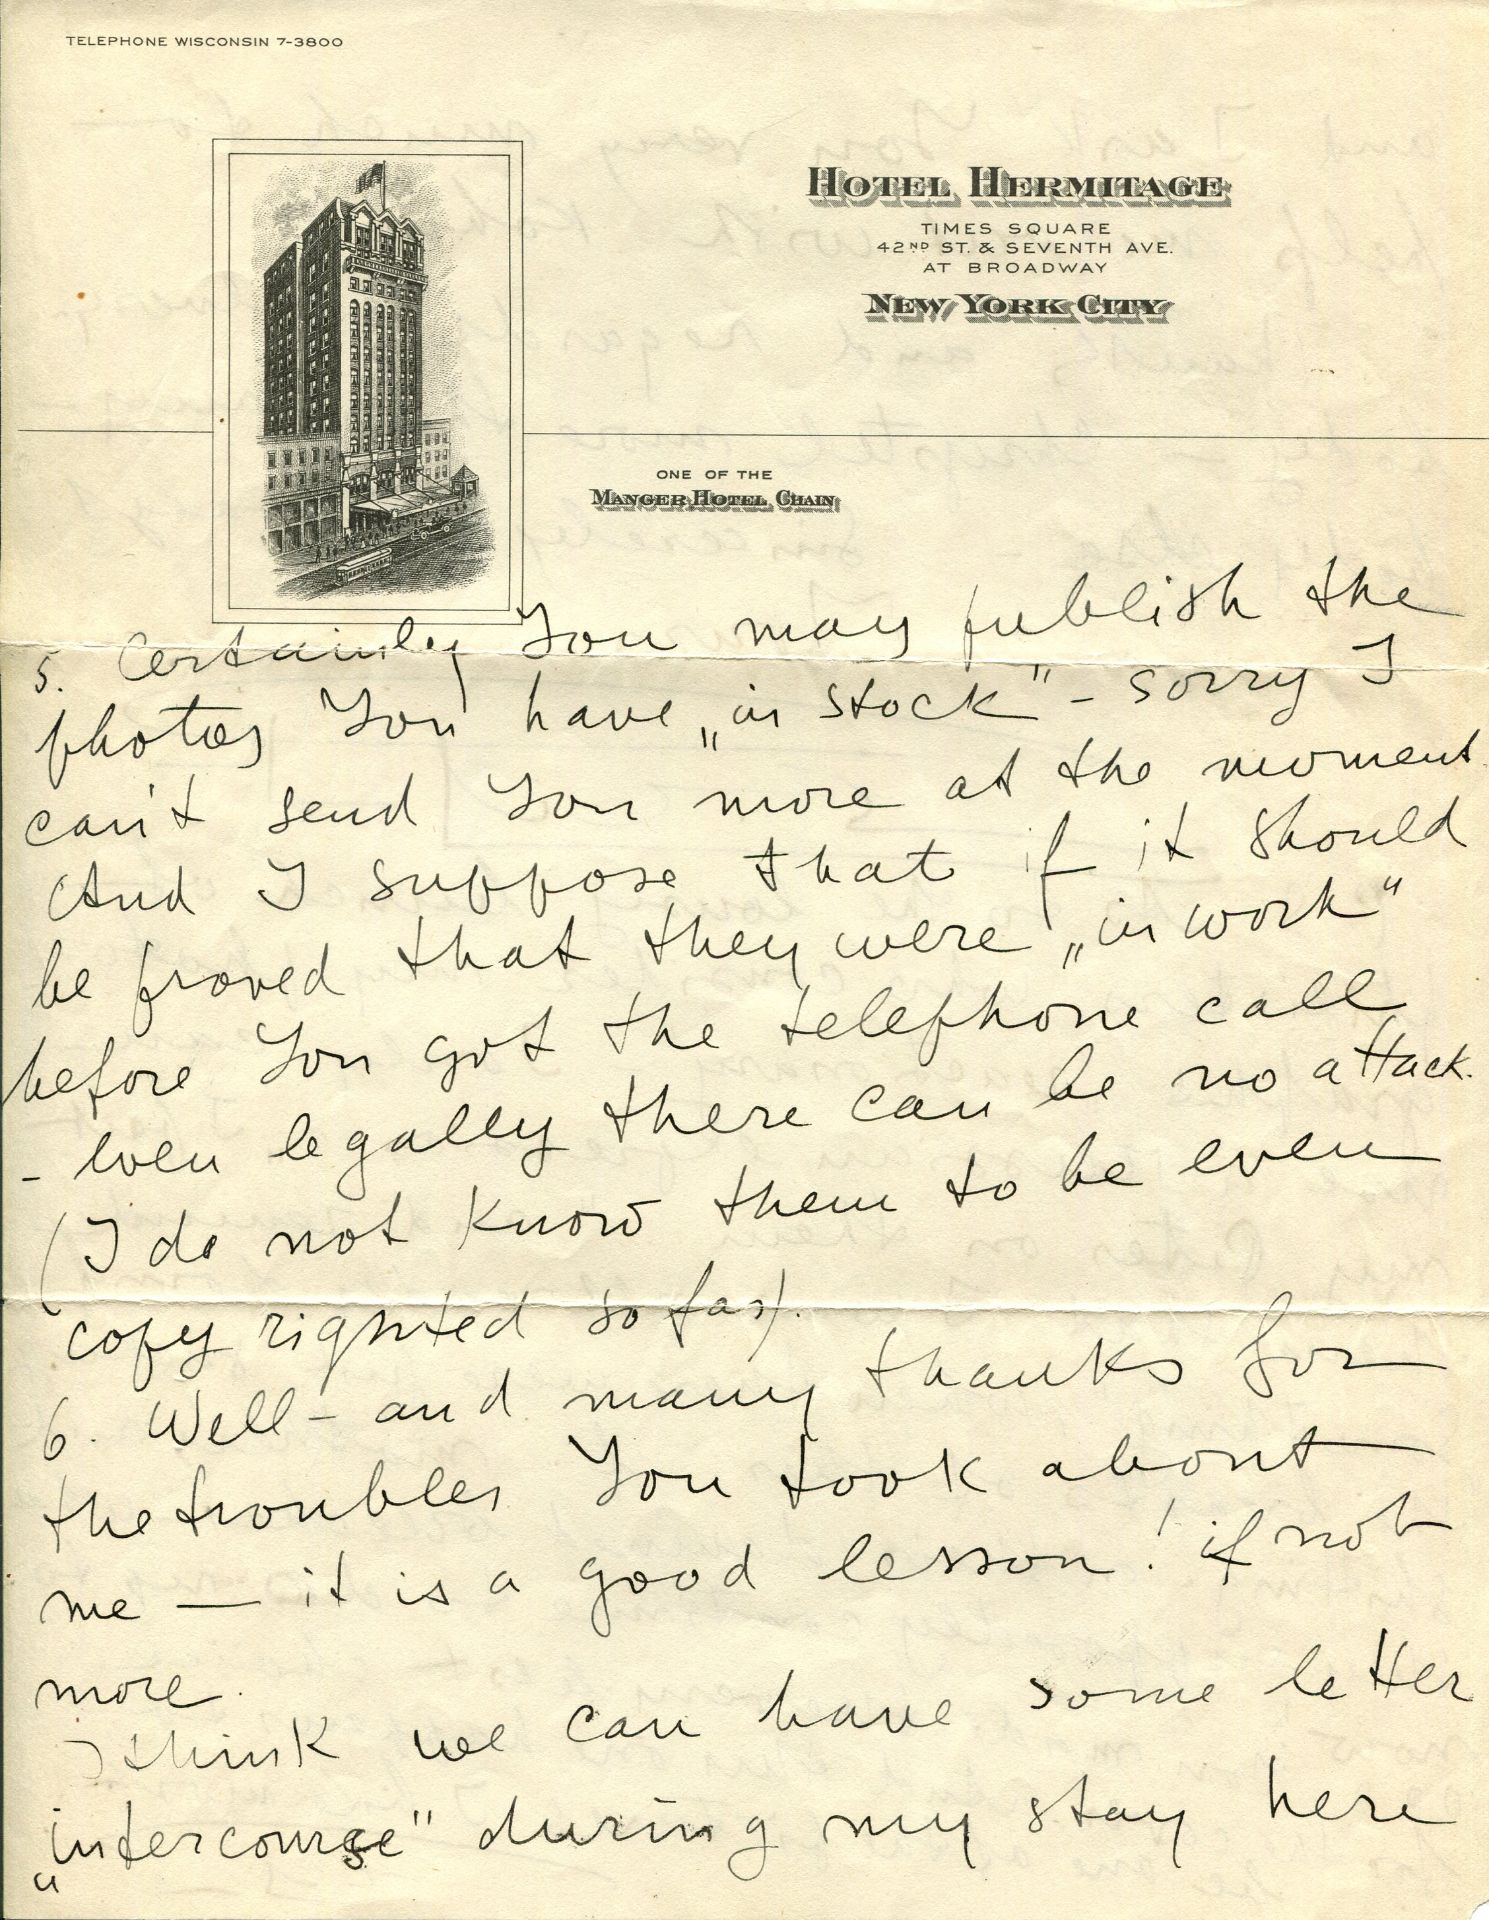 TELEPHONE WISCONSIN 7-3800
HOTEL HERMITAGE
TIMES SQUARE
42ND ST. & SEVENTH AVE.
AT BROADWAY
NEW YORK CITY
ONE OF THE
MANGER HOTEL CHAIN
5. Certainly You may publish the
photos You have „in stock" - sorry I
can't send You more at the moment.
And I suppose that if it should
be proved that they were „in work"
before You got the telephone call
- even legally there can be no attack.
(I do not know them to be even
copy righted so far).
6. Well - and many thanks for
the troubles You took about
me — it is a good lesson! if not
more.
I think we can have some letter
„intercourse" during my stay here